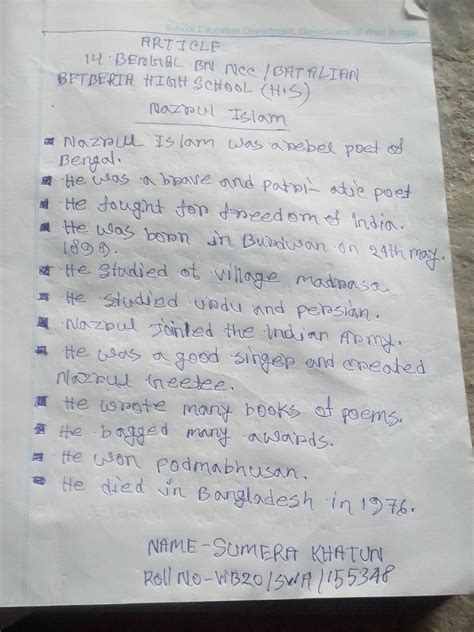 School Education Department, Government of West Bengal
ARTICLE
14 BENGAL BN NCC/BATALIAN
BETBERIA HIGH SCHOOL (H.S)
Nazrul Islam
Nazrul Islam was a rebel poet of
Bengal.
He was a brave and patri-atic poet
He fought for freedom of India.
He was born in Burdwan on 24th may.
1899.
He studied at village madrasa.
He studied urdu and persian.
Nazrul joinled the Indian Army.
He was a good singer and created
Nazrul Geetee.
He wrote many books of poems.
He bagged many awards.
He won Podmabhusan.
He died in Bangladesh in 1976.
NAME-SUMERA KHATUN
Roll NO-WB20/SWA/155348